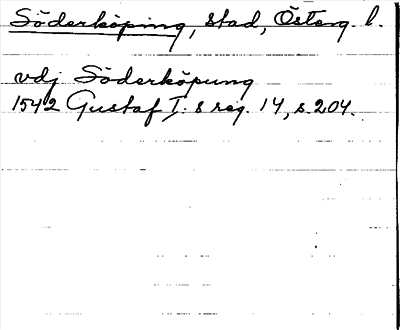 Söderköping, stad, Österg. l.
vdj Söderköpung
1542 Gustaf I: s reg. 14, s. 204.